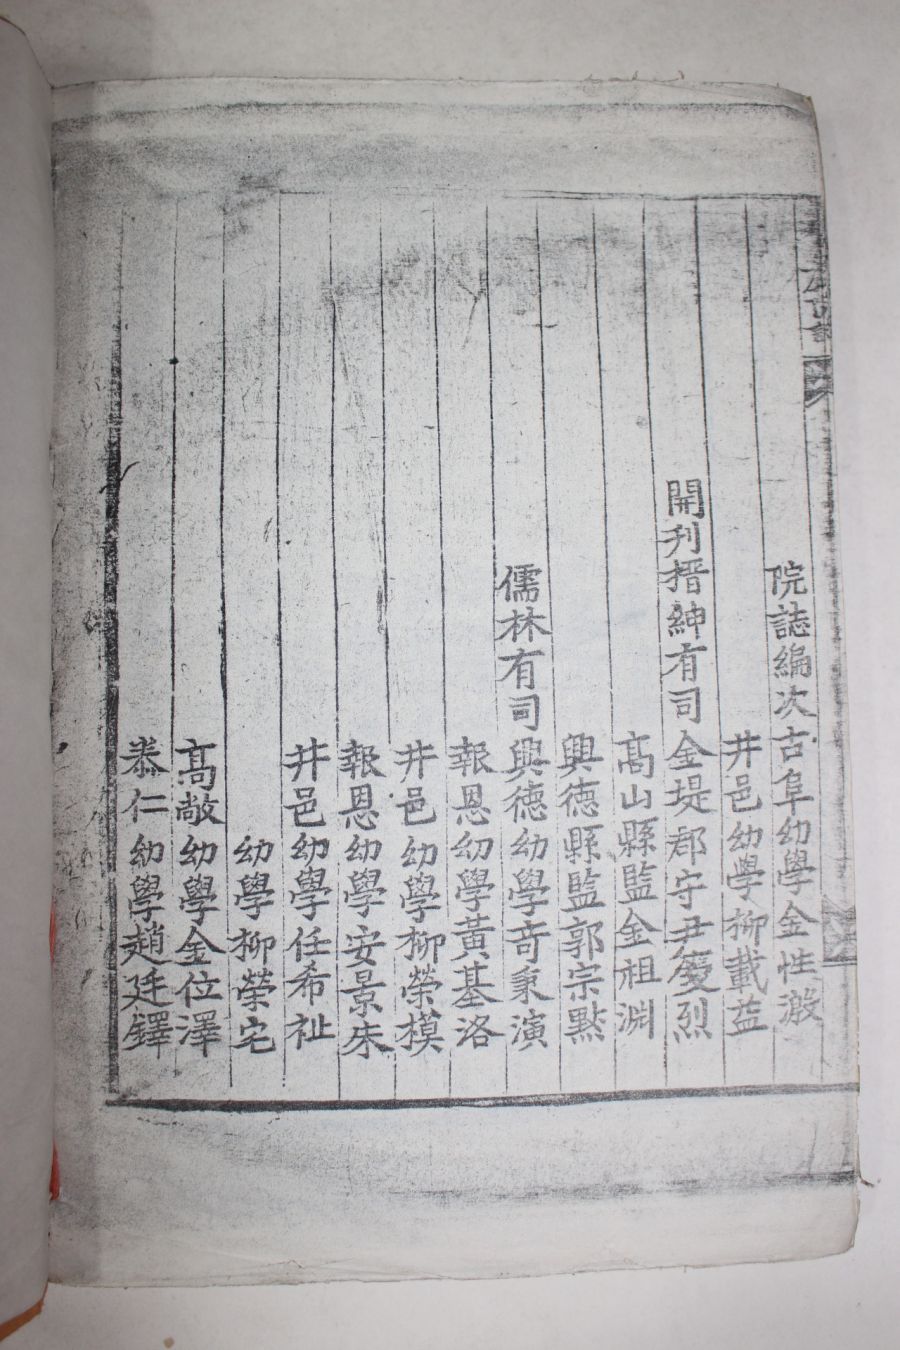 院誌編次古阜幼學金性溵
井邑幼學柳載益
開刋搢紳有司金堤郡守尹慶烈
高山縣監金祖淵
興德縣監郭宗㸃
儒林有司興德幼學奇秉演
報恩幼學黃基洛
井邑幼學柳榮模
報恩幼學安景朱
井邑幼學任希祉
幼學柳榮宅
高敞幼學金位澤
泰仁幼學趙廷鐸